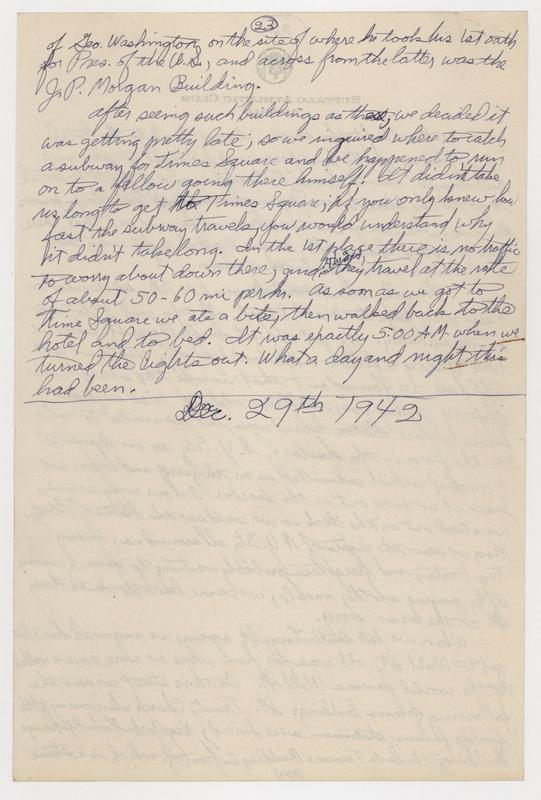 23
of Geo. Washington, on the site of where he took his 1st oath
for Pres. of the U.S., and across from the latter was the
J.P. Morgan Building.
After seeing such buildings as these, we decided it
was getting pretty late, so we inquired where to catch
a subway for Times Square and we happened to run
on to a fellow going there himself. It didn't take
us long to get to Times Square, if you only knew how
fast the subway travels, you would understand why
it didn't take long. In the 1st place there is no traffic
to worry about down there, and they travel at the rate
of about 50-60 mi per h. As soon as we got to
Time Square we ate a bite, then walked back to the
hotel and to bed. It was exactly 5:00 A.M. when we
turned the lights out. What a day and night this
had been.
Dec. 29th 1942